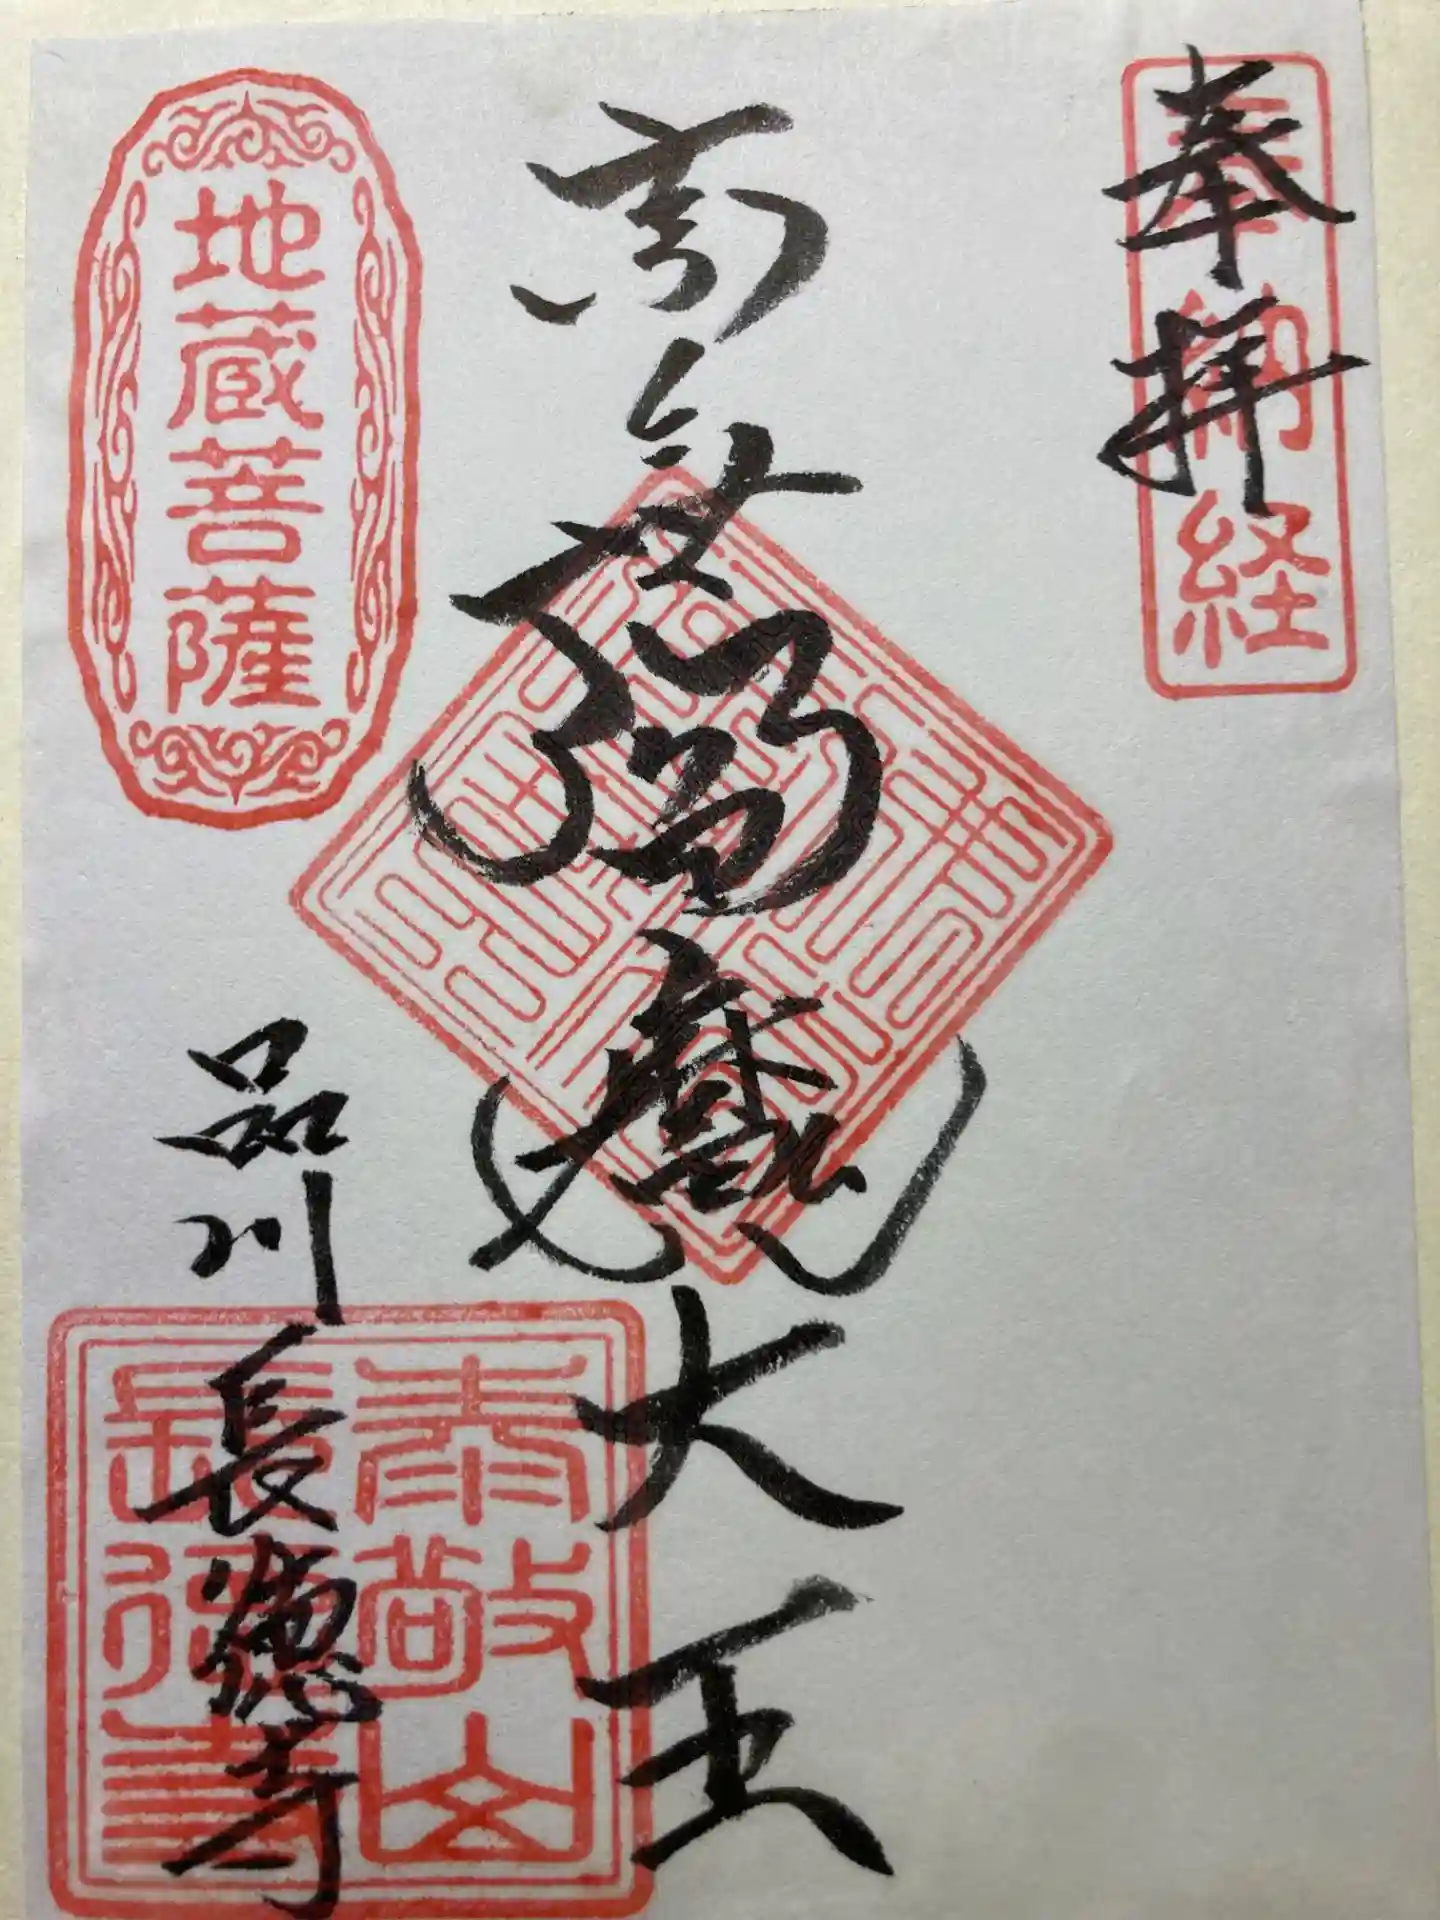 奉拝
奉納経
南無閻魔大王
地蔵菩薩
品川長徳寺
山
長徳寺